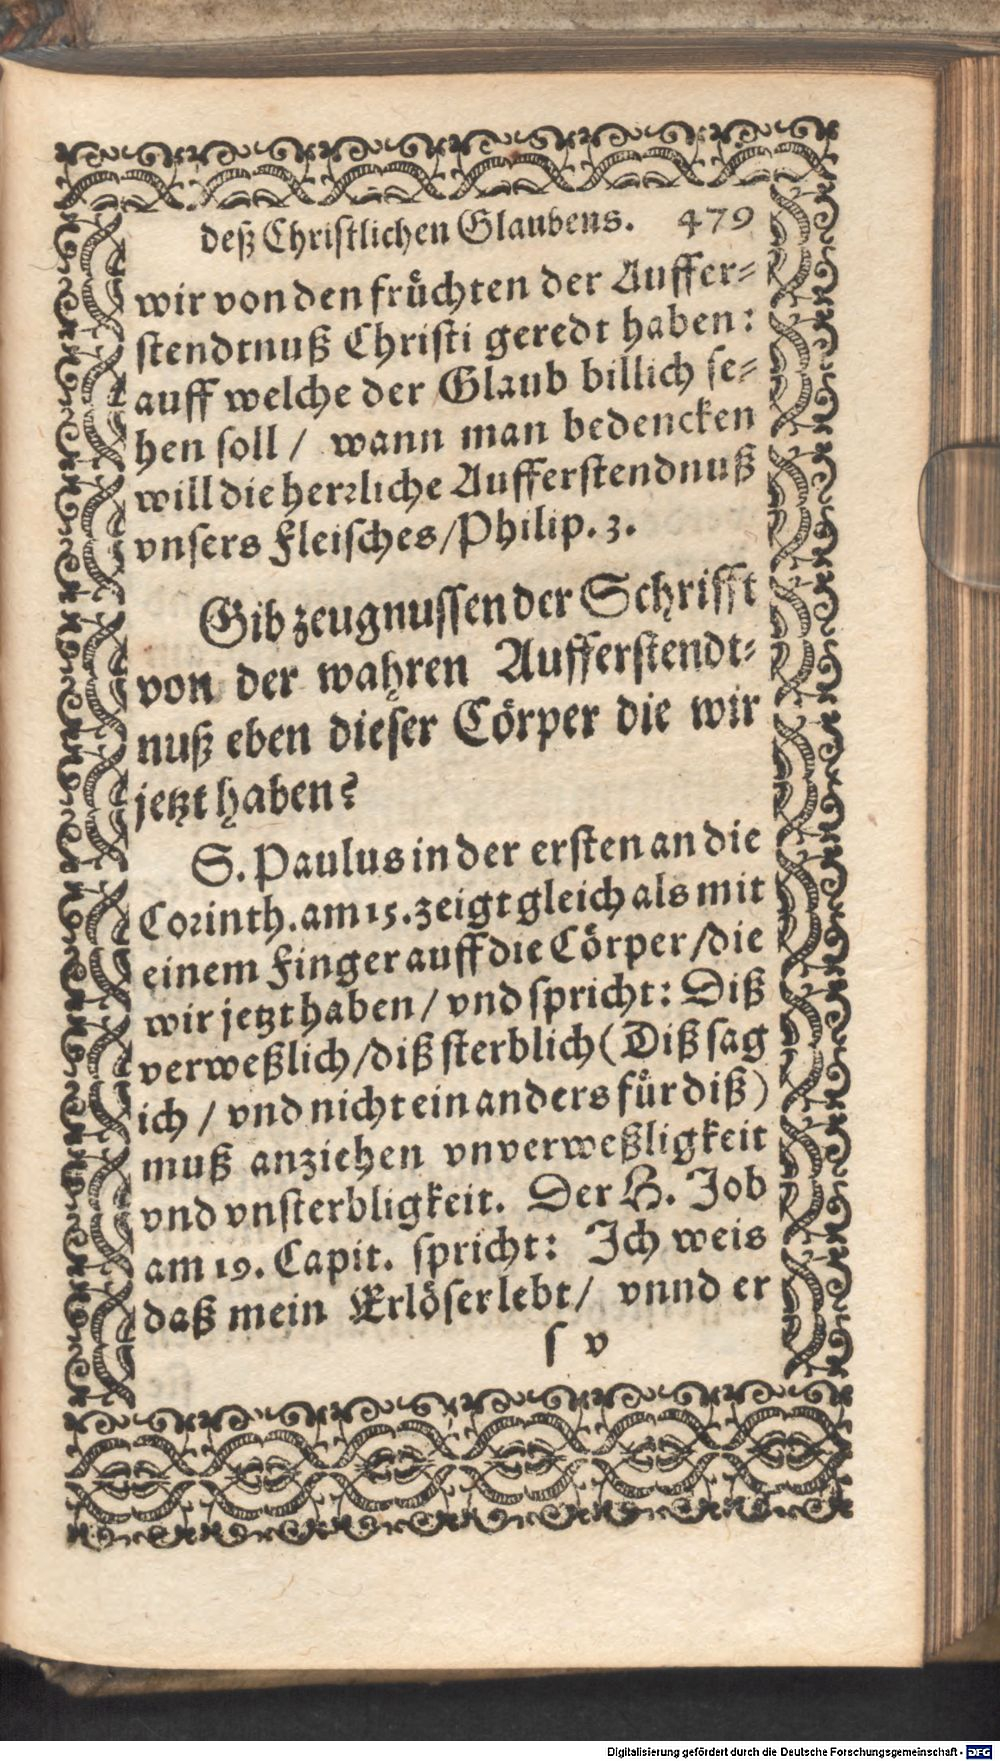 deß Christlichen Glaubens. 479
wir von den früchten der Auffer-
stendtnuß Christi geredt haben:
auff welche der Glaub billich se-
hen soll / wann man bedencken
will die herrliche Aufferstendnuß
vnsers Fleisches/Philip. 3.
Gib zeugnussen der Schrifft
von der wahren Aufferstendt-
nuß eben dieser Cörper die wir
jetzt haben?
S. Paulus in der ersten an die
Corinth. am 15. zeigt gleich als mit
einem Finger auff die Cörper/die
wir jetzt haben/ vnd spricht: Diß
verweßlich/diß sterblich (Diß sag
ich / vnd nicht ein anders für diß)
muß anziehen vnverweßligkeit
vnd vnsterbligkeit. Der H. Job
am 19. Capit. spricht: Ich weis
daß mein Erlöser lebt/ vnnd er
s v
Digitalisierung gefördert durch die Deutsche Forschungsgemeinschaft - DFG